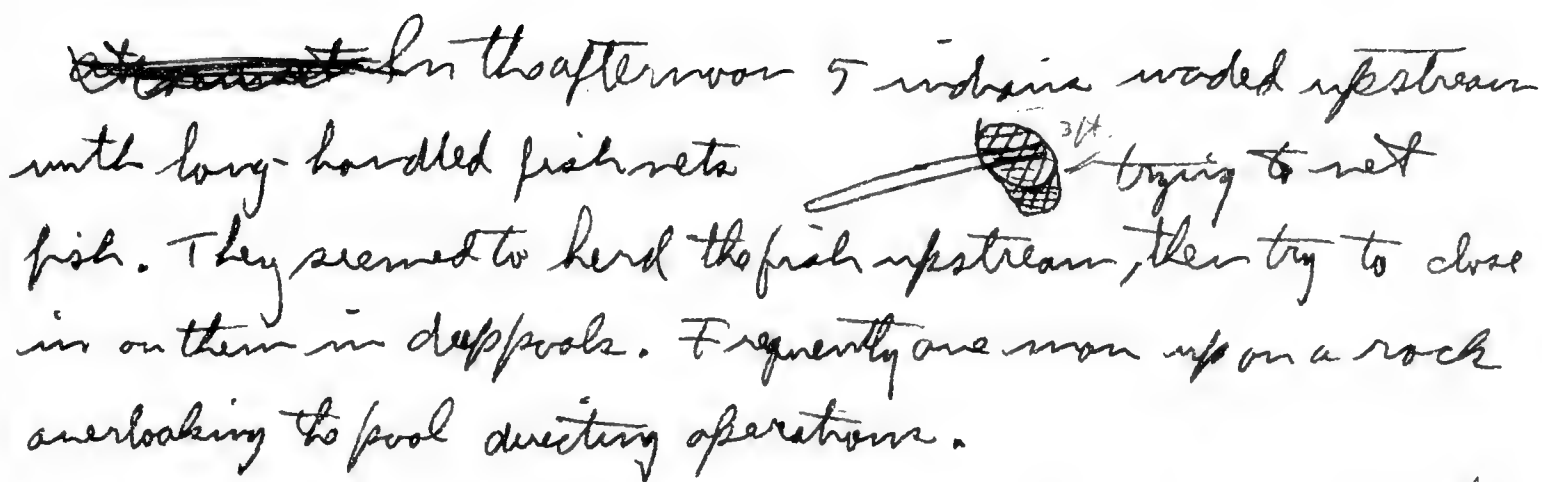 In the afternoon 5 indians waded upstream
with long-handled fish nets 3 ft. trying to net
fish. They seemed to herd the fish upstream, then try to close
in on them in deep pools. Frequently one man up on a rock
overlooking the pool directing operations.